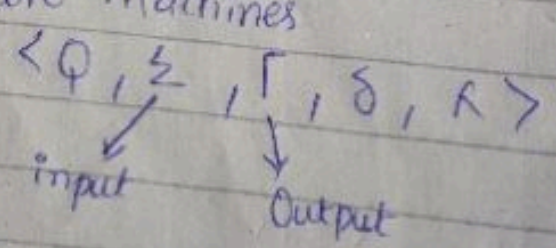 Machines
<Q, Σ, Γ, δ, >
input
Output